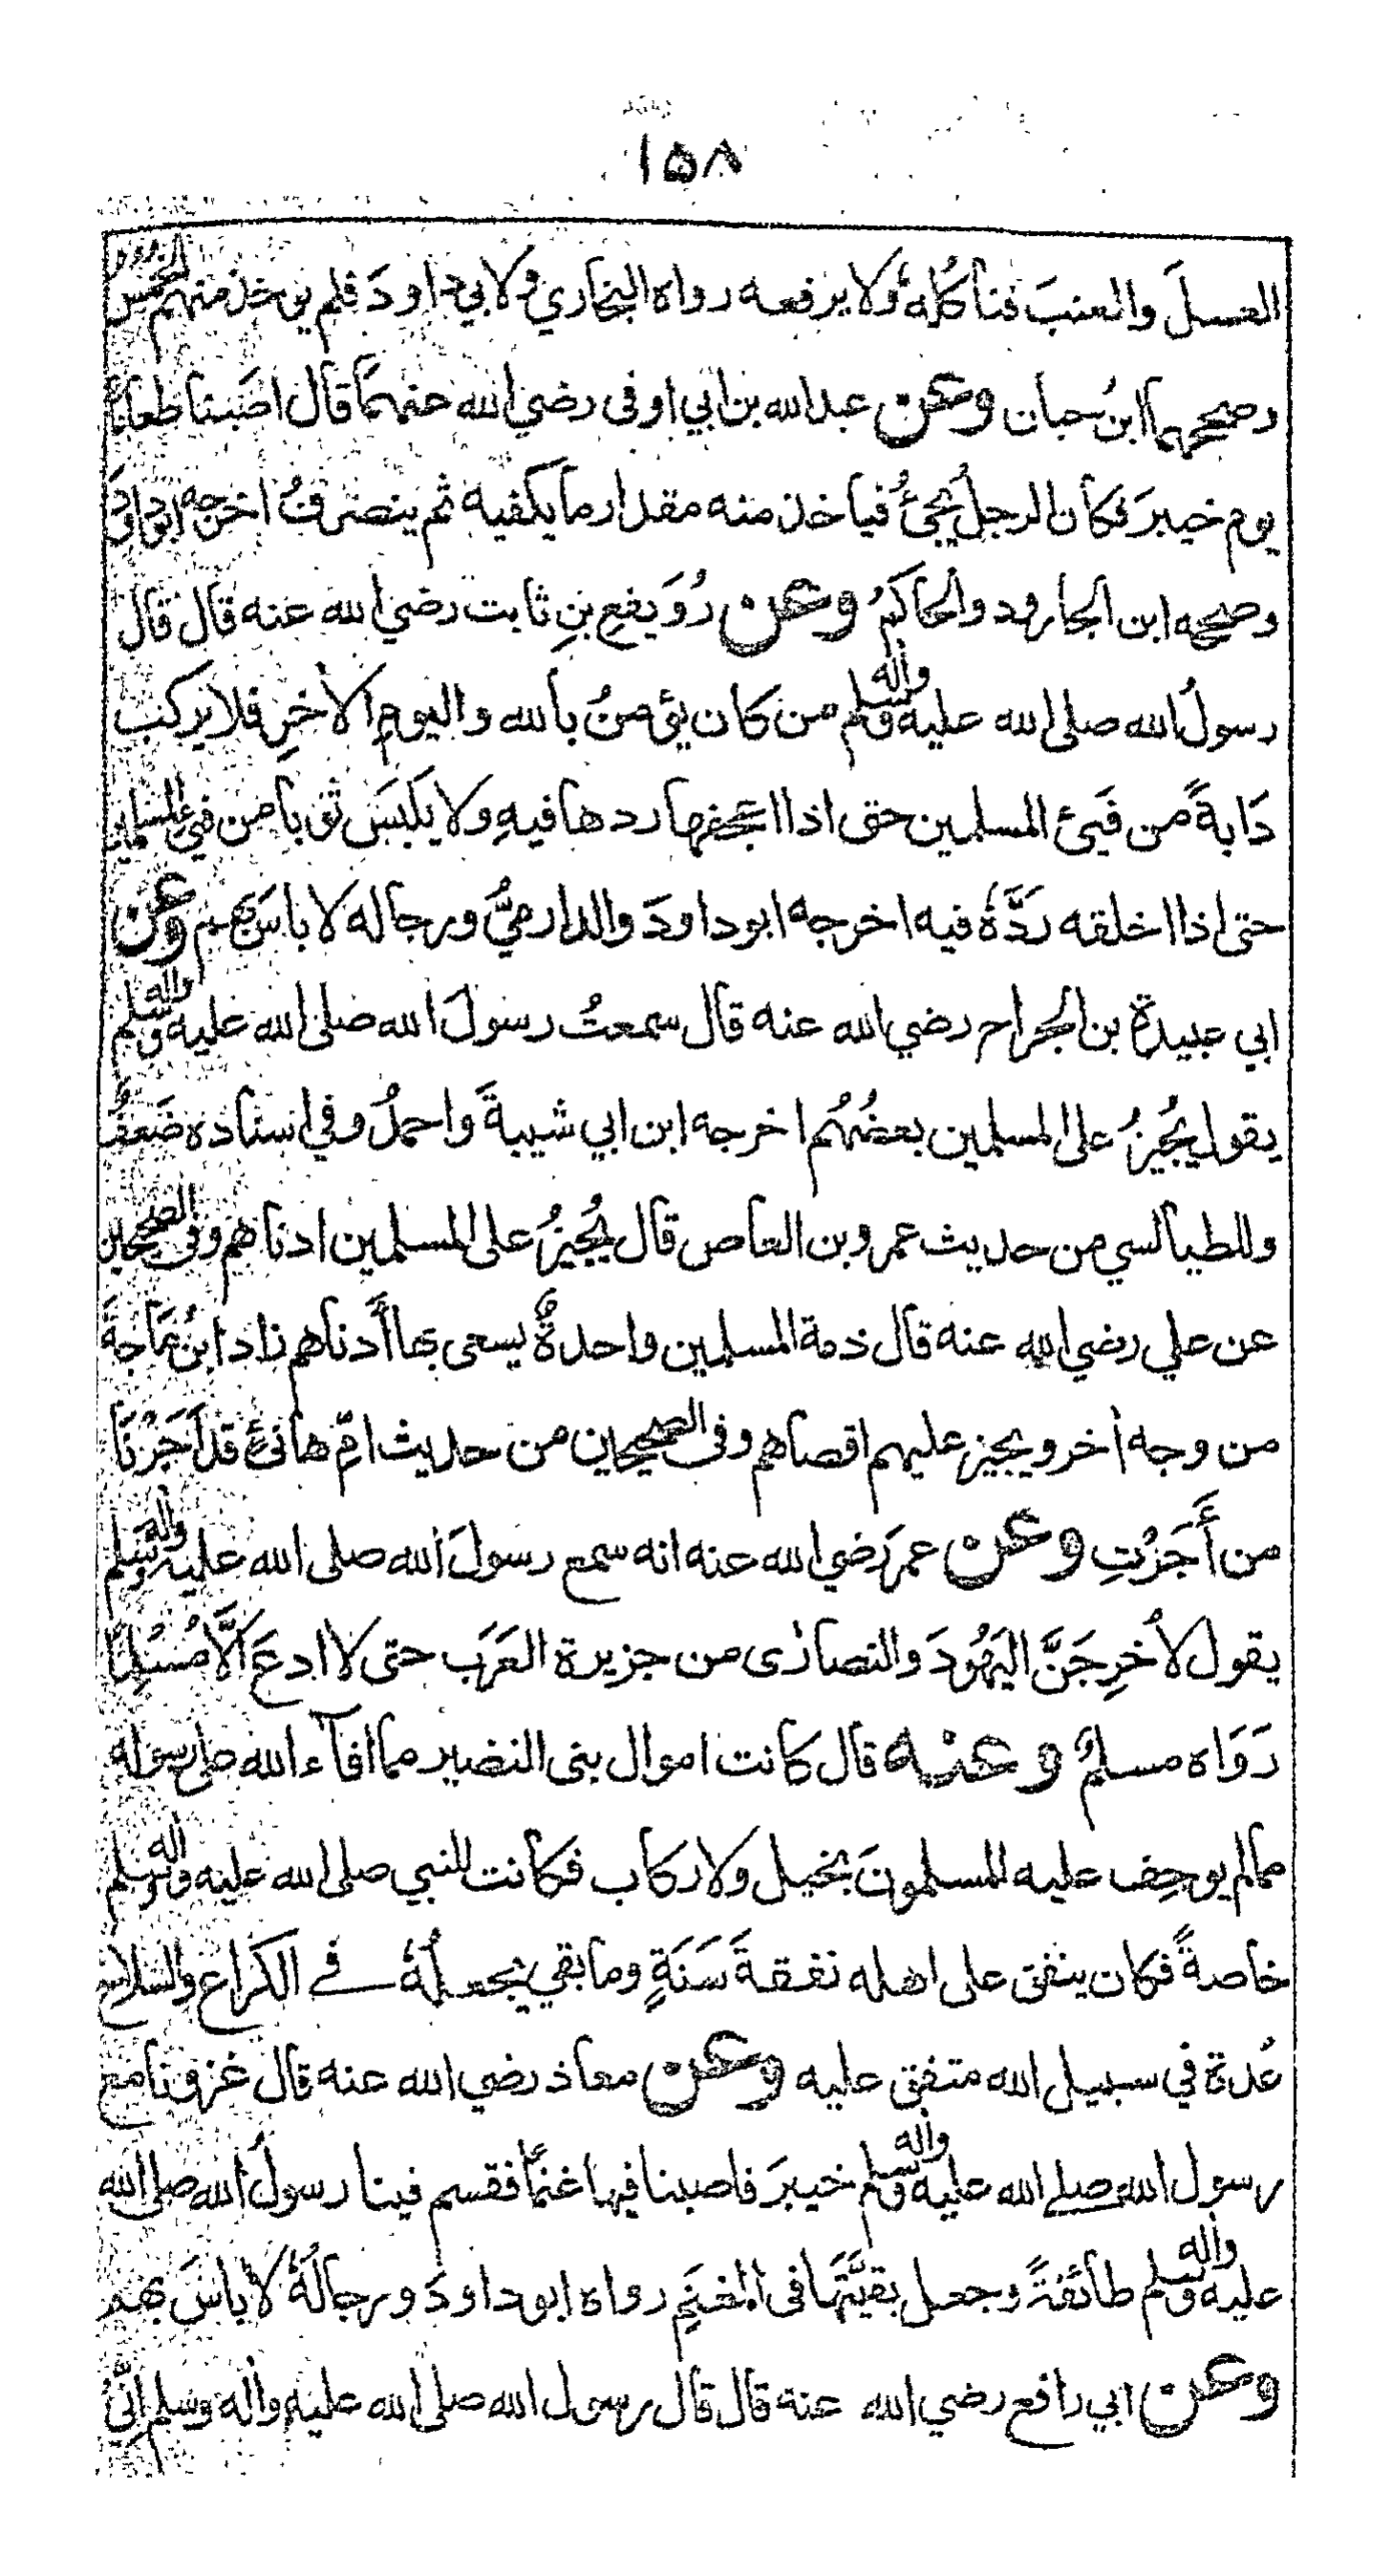 ١٥٨
العسلَ والعنبَ فنأكلُهُ ولا يرفعه رواه البخاري ولابي داودَ فلم يوخذ منهم الخُمُسُ
وصححهما ابنُ حبان وعن عبد الله بن ابي اوفى رضي الله عنهما قال اصَبنا طعامًا
يوم خيبرَ فكان الرجلُ يجئُ فياخذ منه مقدار ما يكفيه ثم ينصرفُ اخرجه ابوداودَ
وصححه ابن الجارود والحاكمُ وعن رُوَيفعِ بنِ ثابت رضي الله عنه قال قال
رسولُ الله صلى الله عليه واٰله وسلم من كان يؤمنُ بالله واليومِ الاٰخرِ فلا يركب
دَابةً من فَيئ المسلمين حتى اذا اعجفها ردها فيهِ ولا يَلبَسَ ثوبا من فيئ المسلمين
حتى اذا اخلقه رَدَّهُ فيه اخرجه ابوداودَ والدارميُّ ورجاله لا باسَ بهم وعن
ابي عبيدة بن الجراح رضي الله عنه قال سمعتُ رسولَ الله صلى الله عليه واٰله وسلم
يقول يُجيزُ على المسلمين بعضُهُم اخرجه ابن ابي شيبةَ واحمدُ وفي اسناده ضَعفٌ
وللطيالسي من حديث عمرو بن العاص قال يُجيزُ على المسلمين ادناهم وفى الصحيحين
عن علي رضي الله عنه قال ذمة المسلمين واحدةٌ يسعى بها أَدناهم زاد ابنُ ماجةَ
من وجه اٰخر ويجيز عليهم اقصاهم وفى الصحيحين من حديث امِّ هانئ قد اَجَرْنَا
من أَجَرْتِ وعن عمرَ رضي الله عنه انه سمع رسولَ الله صلى الله عليه واٰله وسلم
يقول لأُخرِجَنَّ اليَهُودَ والنصارٰى من جزيرة العَرَب حتى لا ادعَ الَّا مُسْلِمًا
رَوَاه مسلمٌ وعنه قال كانت اموال بنى النضير مما افآء الله على رسوله
مما لم يوجِف عليه المسلمونَ بخيل ولا ركاب فكانت للنبي صلى الله عليه واٰله وسلم
خاصةً فكان ينفق على اهله نفقةَ سَنَةٍ وما بقي يجعلُهُ فے الكراع والسلاح
عُدة في سبيل الله متفق عليه وعن معاذ رضي الله عنه قال غزونا مع
رسول الله صلے الله عليه واٰله وسلم خيبرَ فاصبنا فيها غنمًا فقسم فينا رسولُ الله صلى الله
عليه واٰله وسلم طائفةً وجعل بقيَّتَها فى المغنَمِ رواه ابوداودَ ورجالُهُ لا باسَ بهم
وعن ابي رافع رضي الله عنه قال قال رسول الله صلى الله عليه واٰله وسلم اِنِّيْ